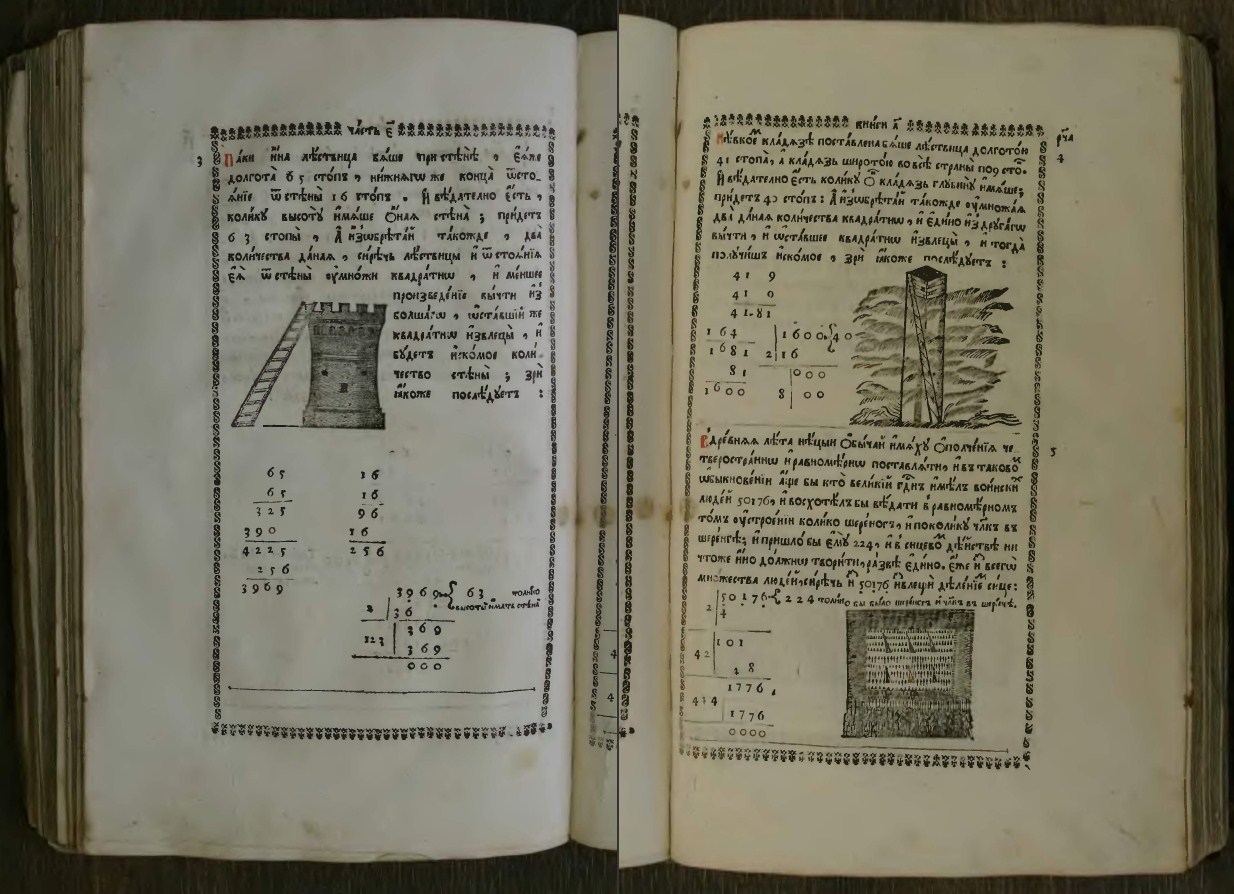 ча́сть є҃
з
Па́ки и҆́на лѣ́ствица бѧ́ше при стѣнѣ̀ , є҆ѧ́же
долгота̀ 65 сто́пъ , ни́жнѧгѡ же конца̀ ѿсто-
ѧ́нїе ѿ стѣны̀ 16 сто́пъ . И҆ вѣ́дателно є҆́сть ,
коли́ку высотꙋ̀ и҆мѧ́ше ѻ҆́наѧ стѣна̀ ; прїи́детъ
63 стопы̀ , А҆ и҆з̾ѡбрѣта́й та́кожде , два̀
коли́чества да̑наѧ , си́рѣчь лѣ́ствицы и҆ ѿстоѧ́нїѧ
є҆ѧ̀ ѿ стѣны̀ ᲂу҆мно́жи квадра́тнѡ , и҆ ме́ншее
произведе́нїе вы́чти и҆з̾
бо́лшагѡ , ѡ҆ста́вшїй же
квадра́тнѡ и҆звлецы̀ , и҆
бꙋ́детъ и҆ско́мое коли́-
чество стѣны̀ ; зрѝ
ꙗ҆́коже послѣ́дꙋетъ :
65 16
65 16
325 96
390 16
4225 256
256
3969
3969 { 63 толи́кѡ
высоты̀ и҆́мать стѣна̀
2 | 36
369
123 | 369
000
кни́ги а҃
рч҃а
4
Нѣ́коемъ кла́дѧзѣ поста́влена бѧ́ше лѣ́ствица долгото́ю
41 стопа̀ , а кла́дѧзь широто́ю во всѣ̀ страны̀ по 9 сто́пъ .
И҆ вѣ́дателно є҆́сть коли́кꙋ ѻ҆́ный кла́дѧзь глꙋбинꙋ̀ и҆мѧ́ше ;
прїи́детъ 40 сто́пъ : А҆ и҆з̾ѡбрѣта́й та́кожде ᲂу҆множа́ѧ
два̀ да̑наѧ коли́чества квадра́тнѡ , и҆ є҆ди́но и҆з̾ дрꙋга́гѡ
вы́чти , и҆ ѡ҆ста́вшее квадра́тнѡ и҆звлецы̀ , и҆ тогда̀
полꙋ́чишъ и҆ско́мое , зрѝ ꙗ҆́коже послѣ́дꙋетъ :
41 9
41 9
41 81
164 | 1600 { 40
1681 2 | 16
81 | 000
1600 8 | 00
5
В̾ дре́внѧѧ лѣ́та нѣ́цыи ѻ҆бы́чай и҆мѧ́хꙋ ѻ҆полче́нїѧ че-
тверостра́ннѡ и҆ равномѣ́рнѡ поставлѧ́ти , и҆ въ таково́мъ
ѡ҆быкнове́нїи а҆́ще бы кто̀ вели́кїй господи́нъ и҆мѣ́лъ во́инскихъ
люде́й 50176 , и҆ восхотѣ́лъ бы вѣ́дати в̾ равномѣ́рномъ
то́мъ ᲂу҆строе́нїи коли́ко шере́ногъ , и҆ по коли́кꙋ чл҃къ въ
шере́нгѣ ; и҆ пришло̀ бы є҆мꙋ̀ 224 , и҆ в̾ си́цевомъ дѣ́йствѣ ни-
что́же и҆́но до́лжнѡ твори́ти , ра́звѣ є҆ди́но . Є҆́же и҆ всегѡ̀
мно́жества люде́й , си́рѣчь и҆з̾ 50176 и҆звлещѝ дѣле́нїе си́це :
2 | 50176 { 224 толи́кѡ бы бы́ло шере́нгъ и҆ чл҃къ въ шере́нгѣ .
4
101
42 | 8
1776
414 | 1776
0000